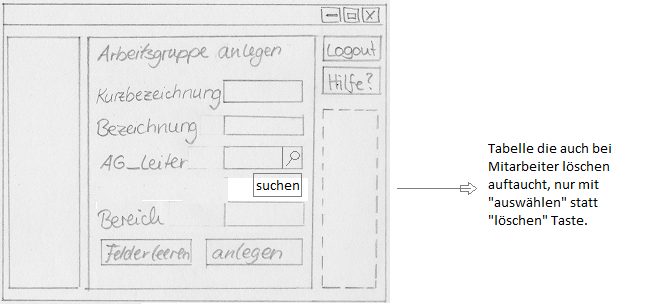 Arbeitsgruppe anlegen
Logout
Hilfe?
Kurzbezeichnung
Bezeichnung
AG_Leiter
suchen
Bereich
Felder leeren
anlegen
Tabelle die auch bei
Mitarbeiter löschen
auftaucht, nur mit
"auswählen" statt
"löschen" Taste.